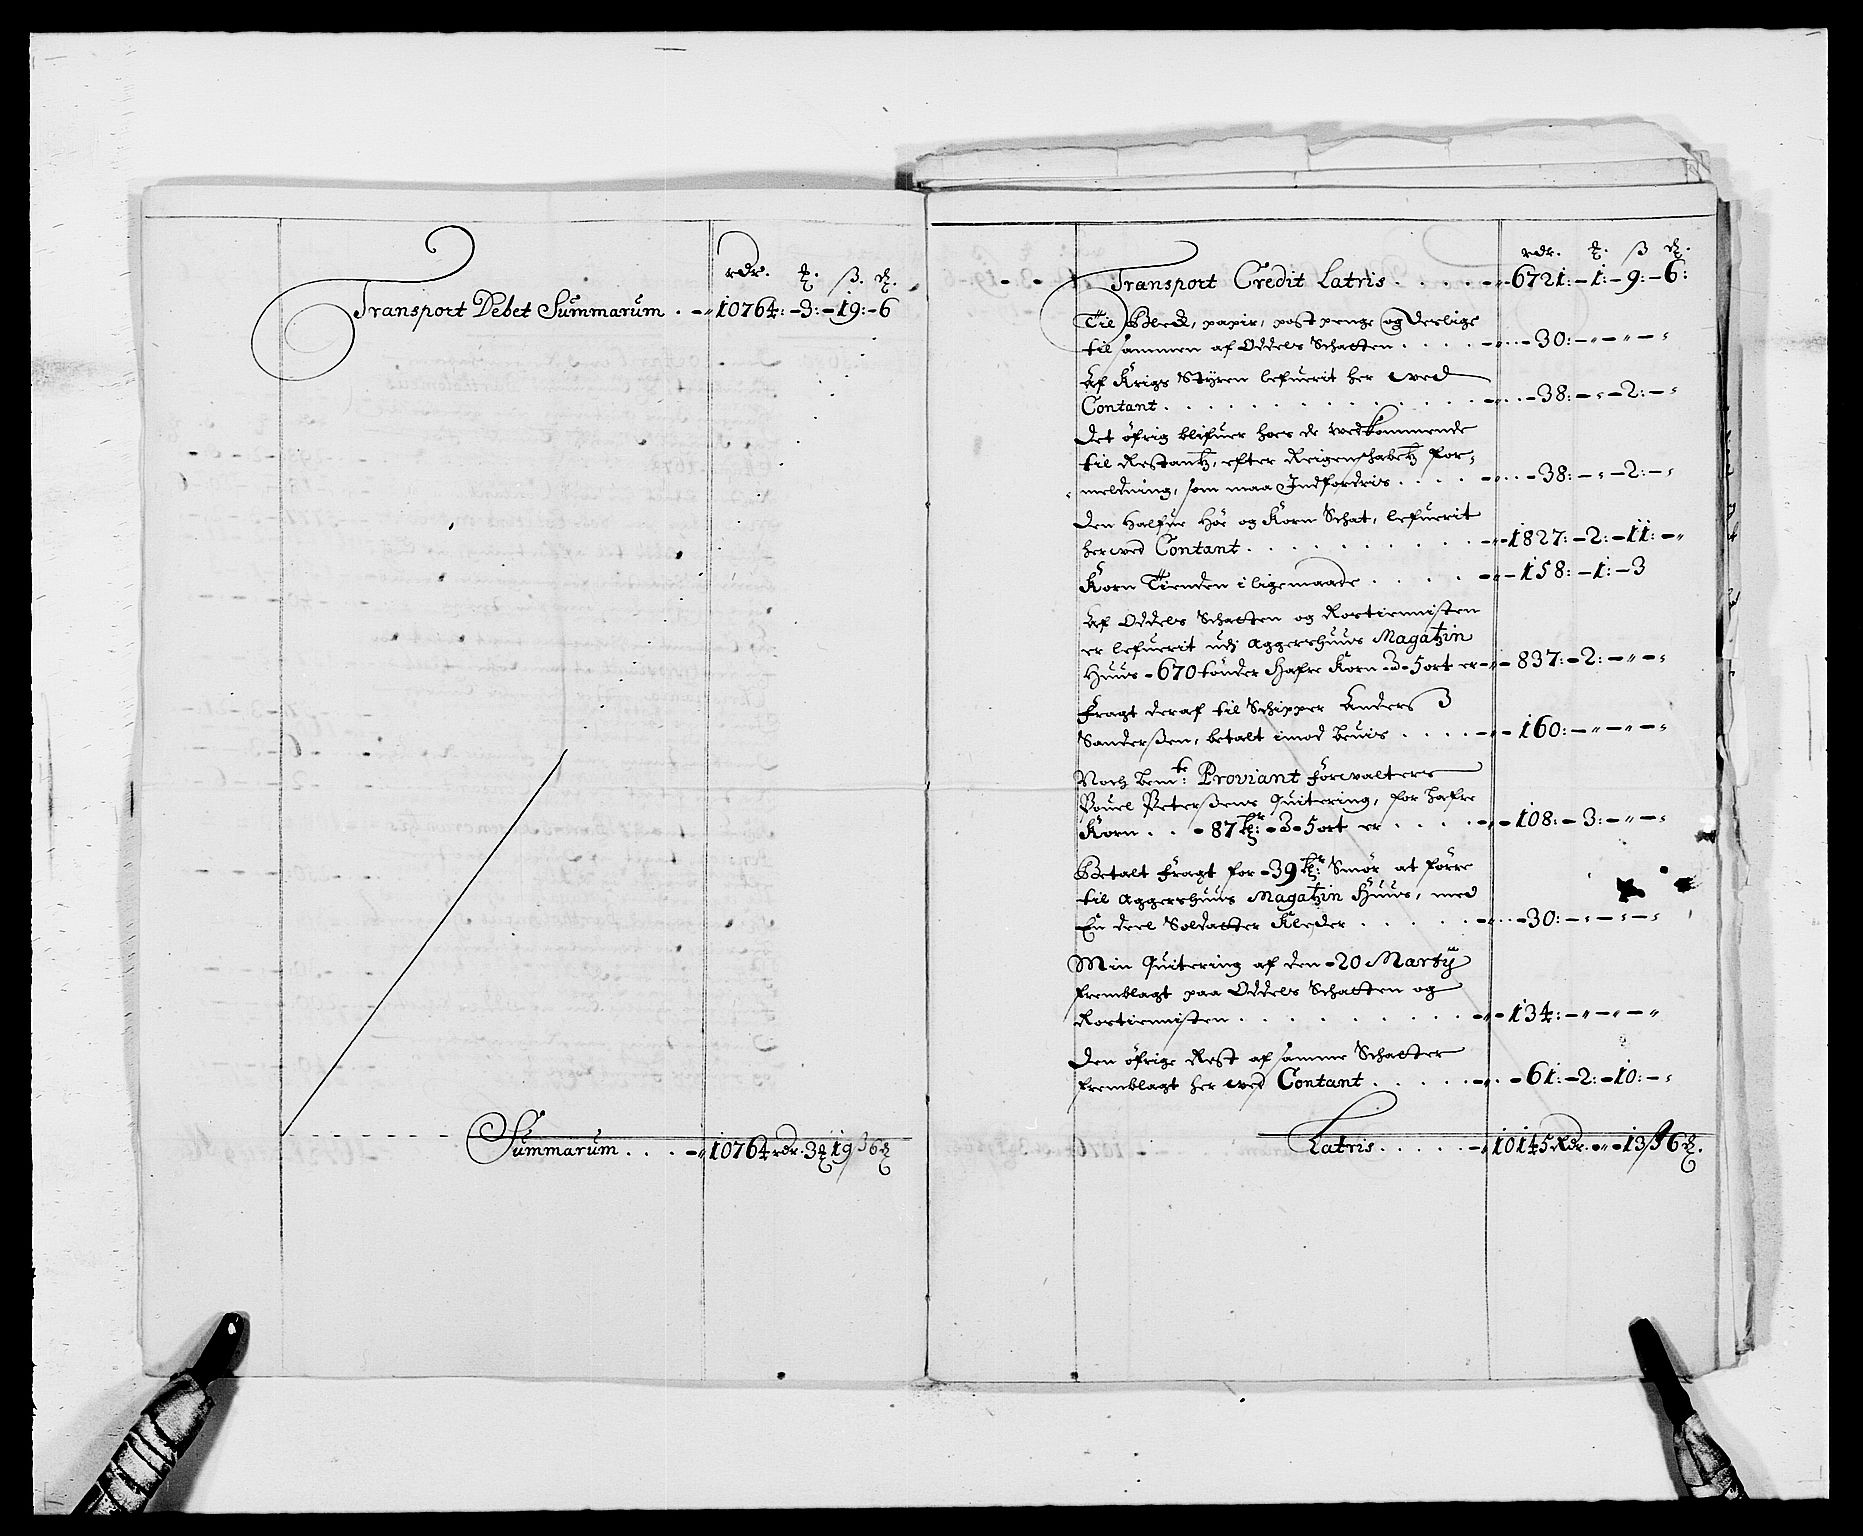 rdr. ꝗ. ß. ₰.
Transport Debet Summarum . - 10764: - 3: - 19: - 6
Summarum . . . - 10764 rdr. 3 ꝗ 19 ß 6 ₰
rdr. ꝗ. ß ₰.
Transport Credit Latris . . . . - 6721: - 1: - 9: - 6:
Til Bleck, papir, post penge og derlige
til sammen af Oddels Schatten . . . . - 30: - " - " - "
Af Krigs Styren lefuerit her wed
Contant . . . . . . . - 38: - " - 2: - "
Det öfrig blifuer hoes de wedkommende
til Restantz, efter Reigenschabetz for-
meldning, som maa Indfordris . . . . - 38: - " - 2: - "
Den Halfue Höe og Korn Schat, lefuerit
her wed Contant . . . . . . - 1827: - 2: - 11: - "
Korn Tienden i ligemaade . . . . - 158: - 1: - 3
Af Oddels Schatten og Rostiennisten
er lefuerit udj Aggershuus Magatzin
Huus - 670 tönder Hafre Korn - 3 - 5 ort er - 837: - 2: - " - "
Fragt deraf til Schipper Anders
Sanderßen, betalt imod beuis . . . . - 160: - " - " - "
Noch bemte: Proviant forwalters
Pouel Peterßens Quitering, for hafre
Korn . . - 87 tr: - 3 - 5 ort er . . . . - 108: - 3: - " - "
Betalt fragt for - 39 tr: Smör at förre
til Aggershuus Magatzin Huus, med
En deel Soldatter Kleder . . . . . - 30: - " - " - "
Min Quitering af den - 20 Martÿ
fremblagt paa Oddels Schatten og
Rostiennisten . . . . . . . - 134: - " - " - "
Den öfrige Rest af samme Schatter
fremblagt her wed Contant . . . . . - 61: - 2: - 10: - "
Latris . . . . . - 10145 Rdr. - " - 13 ß 6 ₰.